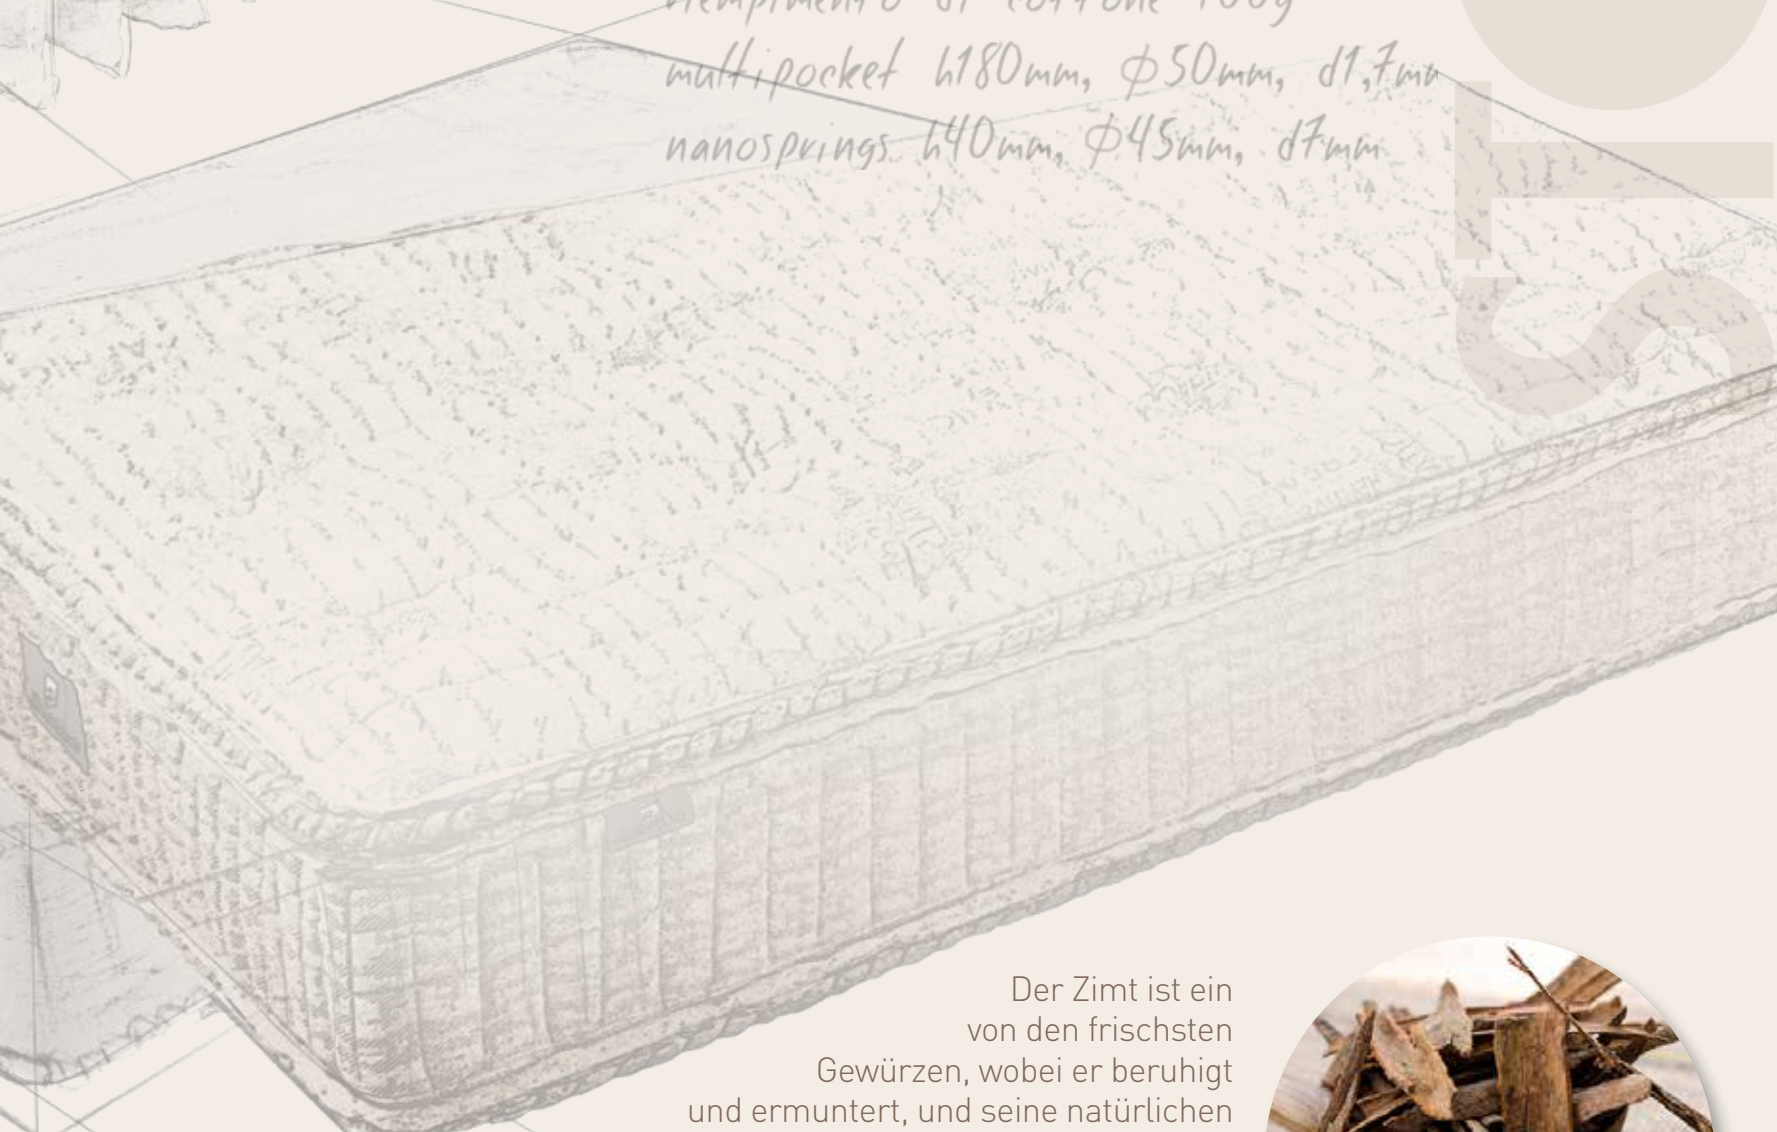 riempimento di cottone 100g
multipocket h180mm, ϕ50mm, d1,7mm
nanosprings h40mm, ϕ45mm, d7mm
STO
Der Zimt ist ein
von den frischsten
Gewürzen, wobei er beruhigt
und ermuntert, und seine natürlichen